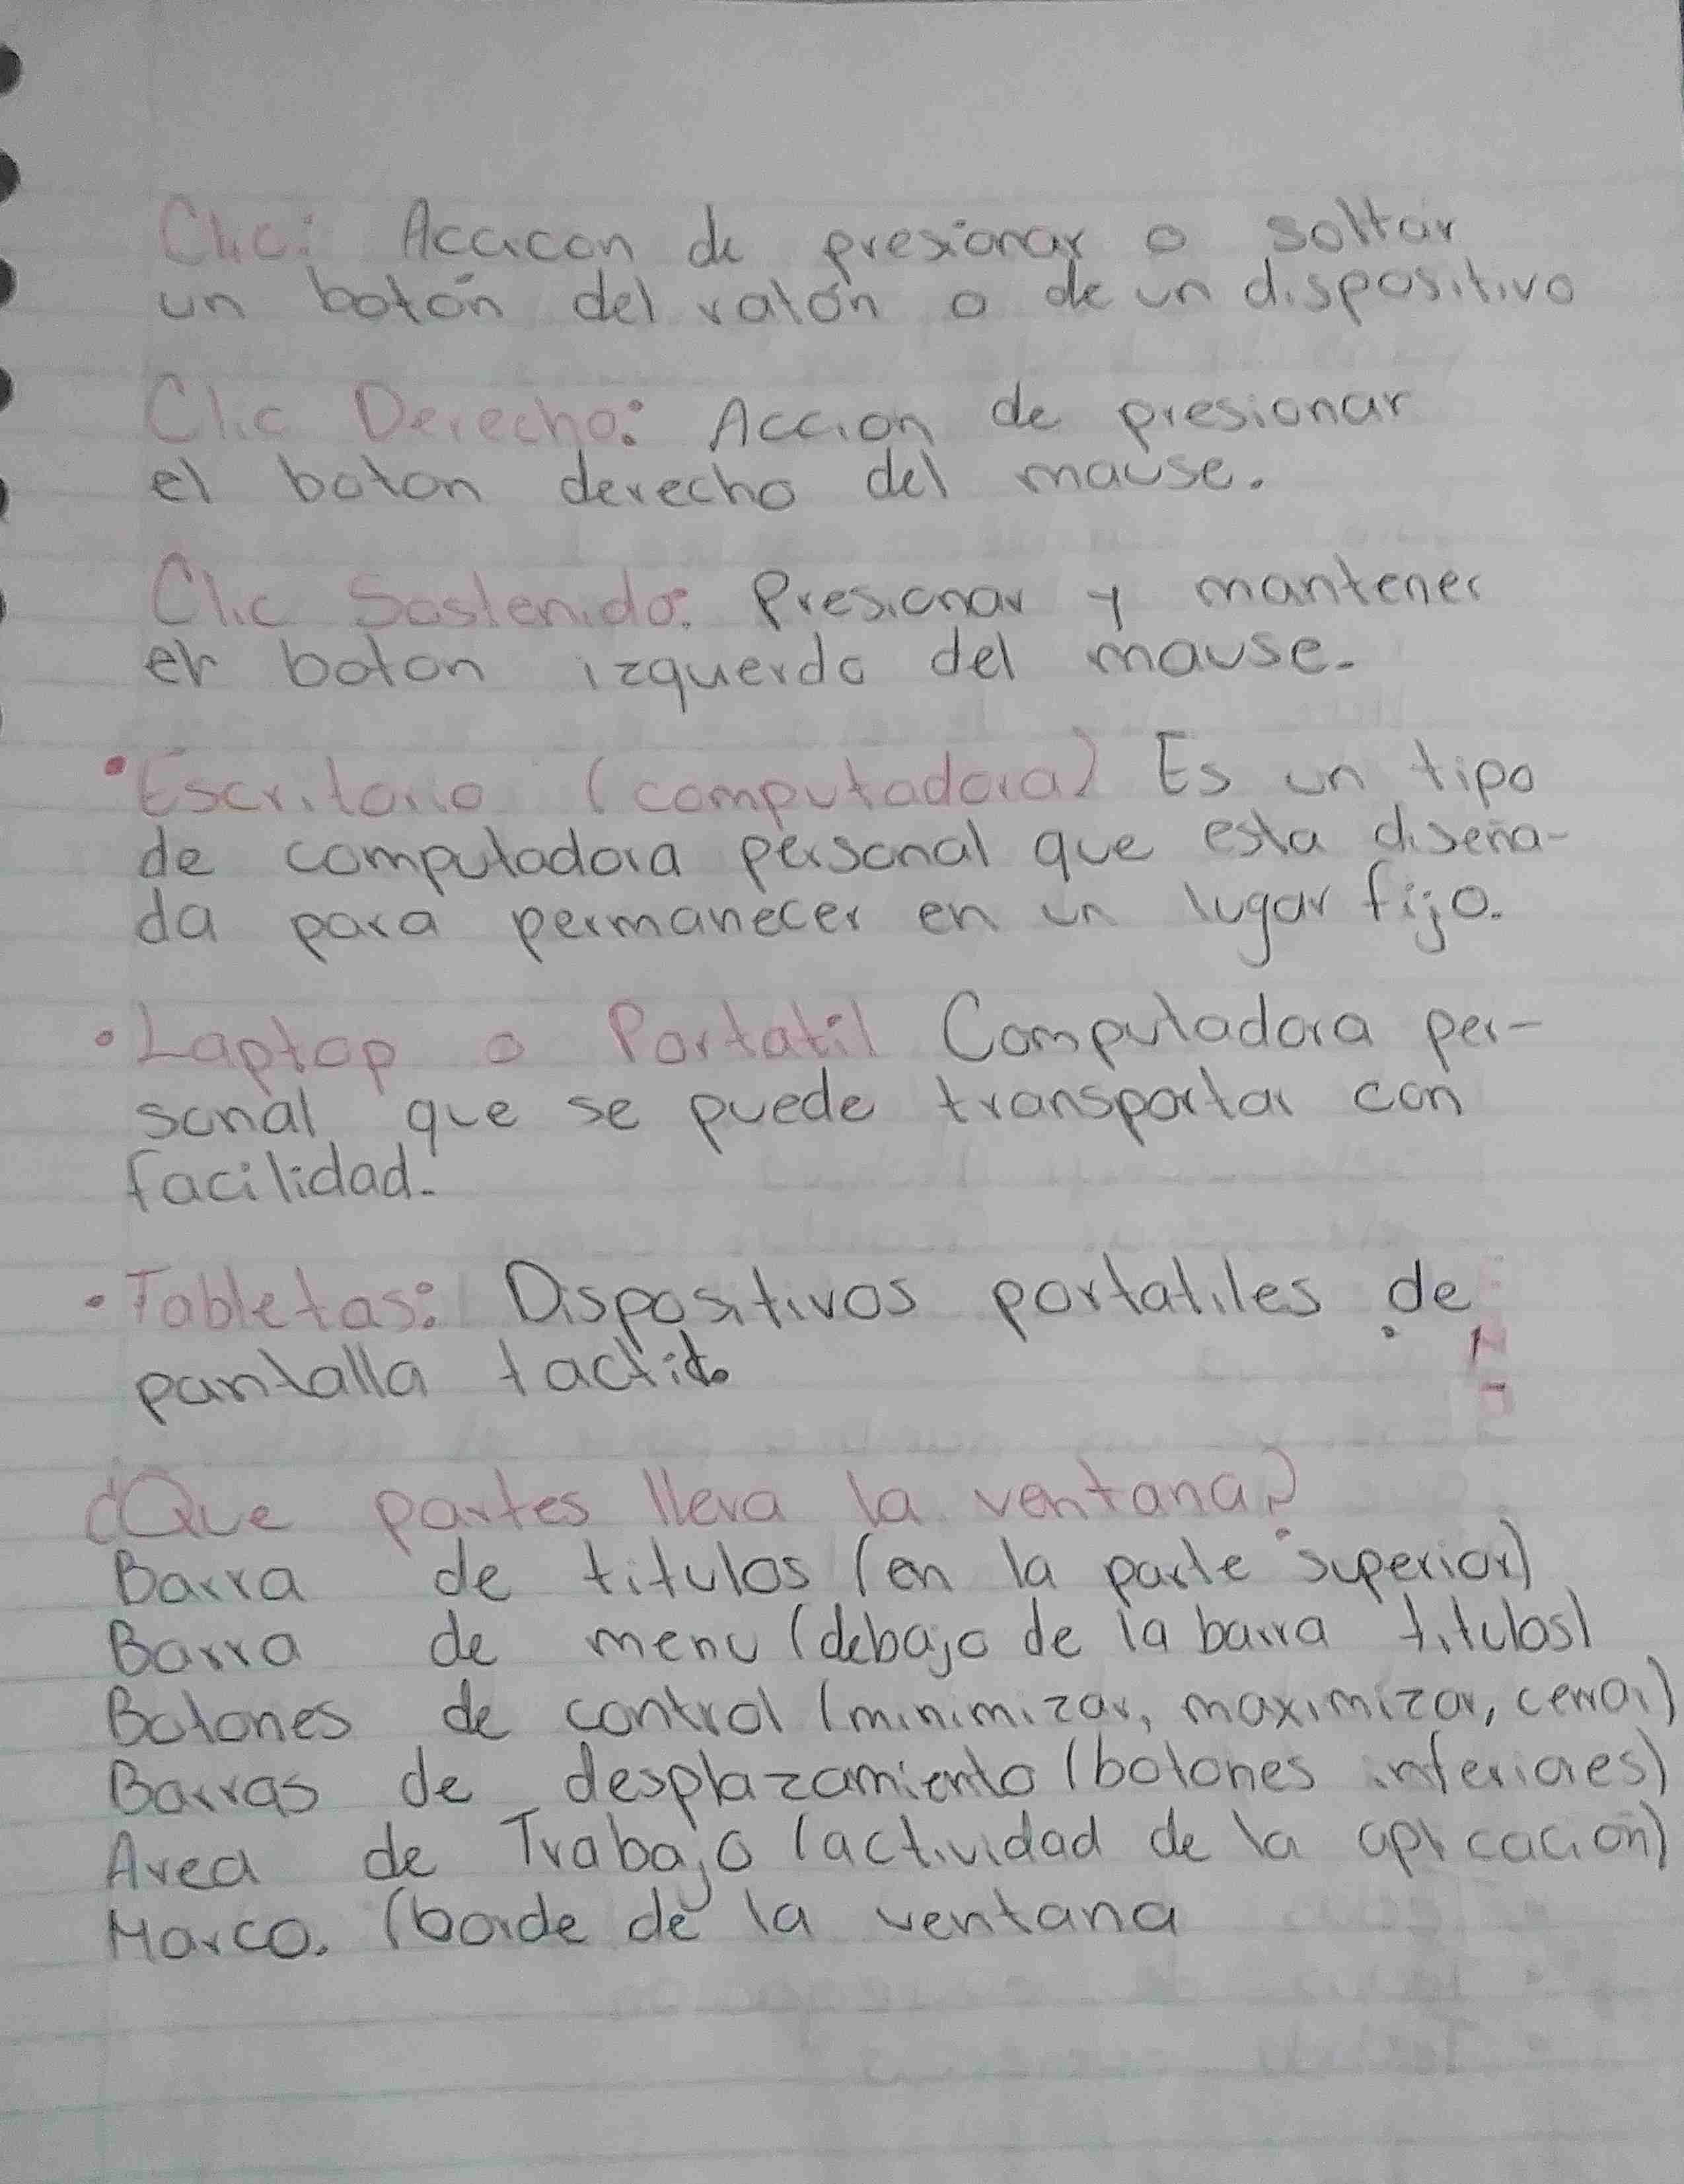 Clic: Accicon de presionar o soltar
un botón del ratón o de un dispositivo
Clic Derecho: Accion de presionar
el boton derecho del mause.
Clic Sostenido: Presionar y mantener
el boton izquerdo del mause.
• Escritorio (computadora) Es un tipo
de computadora personal que esta diseña-
da para permanecer en un lugar fijo.
• Laptop o Portatil Computadora per-
sonal que se puede transportar con
facilidad.
• Tabletas: Dispositivos portatiles de
pantalla
¿Que partes lleva la ventana?
Barra de titulos (en la parte superior)
Barra de menu (debajo de la barra titulos)
Botones de control (minimizar, maximizar, cerrar)
Barras de desplazamiento (botones inferiores)
Area de Trabajo (actividad de la aplicación)
Marco. (borde de la ventana